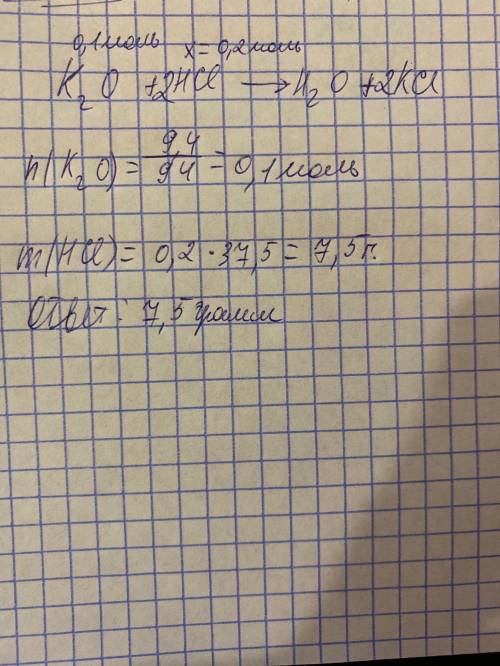 0,1 моль x = 0,2 моль
K₂O + 2HCl ⟶ H₂O + 2KCl
n(K₂O) = 9,4/94 = 0,1 моль
m(HCl) = 0,2 · 37,5 = 7,5 г.
Ответ: 7,5 грамм